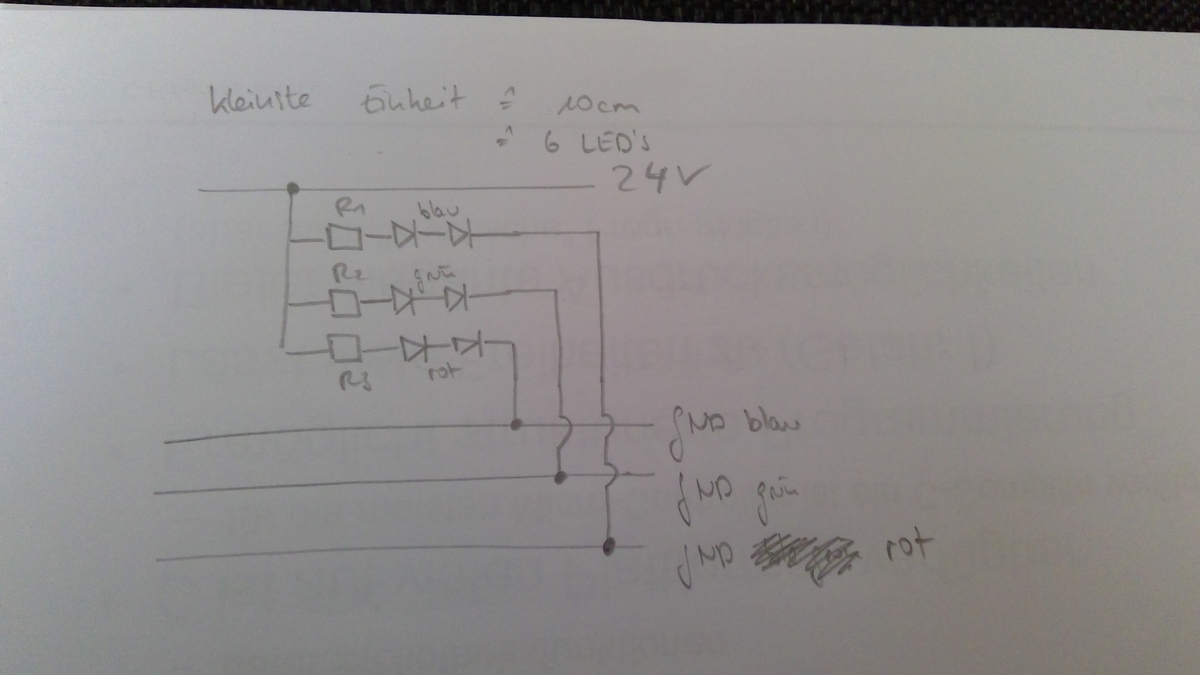 kleinste Einheit ≙ 10cm
≙ 6 LED's
24V
R1 blau
R2 grün
R3 rot
GND blau
GND grün
GND rot